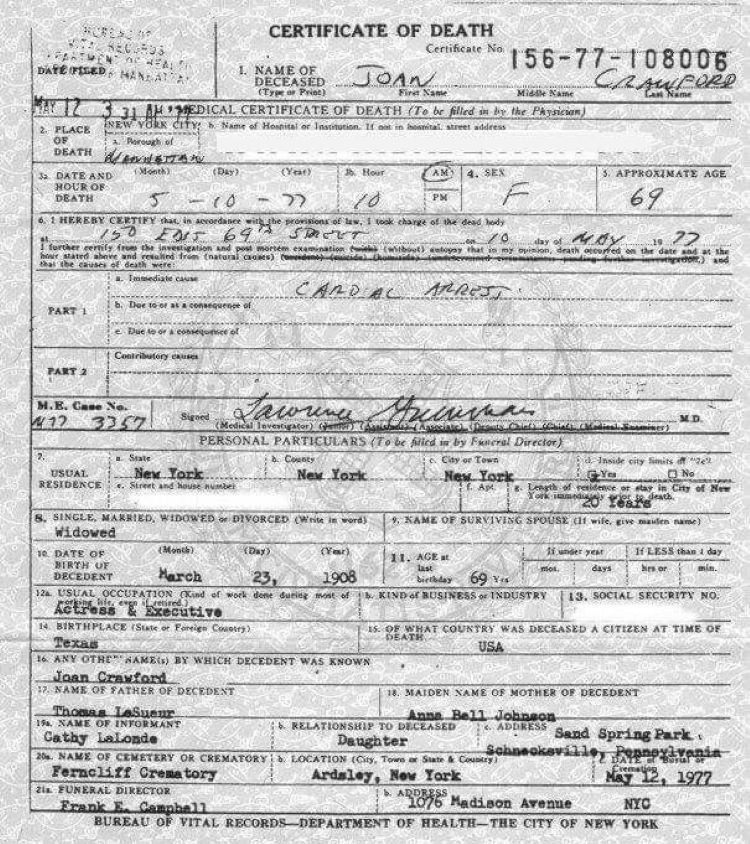 CERTIFICATE OF DEATH
BUREAU OF
VITAL RECORDS
DEPARTMENT OF HEALTH
MANHATTAN
DATE FILED
Certificate No. 156-77-108006
1. NAME OF DECEASED (Type or Print)
JOAN CRAWFORD
First Name Middle Name Last Name
MAY 12 3 31 AM '77
MEDICAL CERTIFICATE OF DEATH (To be filled in by the Physician)
2. PLACE OF DEATH
NEW YORK CITY
a. Borough of
MANHATTAN
b. Name of Hospital or Institution. If not in hospital, street address
3a. DATE AND HOUR OF DEATH
(Month) (Day) (Year) 3b. Hour AM PM
5 - 10 - 77 10
4. SEX
F
5. APPROXIMATE AGE
69
6. I HEREBY CERTIFY that, in accordance with the provisions of law, I took charge of the dead body
at 150 EAST 69TH STREET on 10 day of MAY 1977
I further certify from the investigation and post mortem examination (with) (without) autopsy that in my opinion, death occurred on the date and at the
hour stated above and resulted from (natural causes) (accident) (suicide) (homicide) (undetermined circumstances pending further investigation,) and
that the causes of death were:
PART 1
a. Immediate cause
CARDIAC ARREST.
b. Due to or as a consequence of
c. Due to or a consequence of
PART 2
Contributory causes
M.E. Case No.
M77 3357
Signed Lawrence M.D.
(Medical Investigator) (Junior) (Assistant) (Associate) (Deputy Chief) (Chief) (Medical Examiner)
PERSONAL PARTICULARS (To be filled in by Funeral Director)
7. USUAL RESIDENCE
a. State
New York
b. County
New York
c. City or Town
New York
d. Inside city limits of "7c"?
Yes No
e. Street and house number
f. Apt.
g. Length of residence or stay in City of New York immediately prior to death.
20 Years
8. SINGLE, MARRIED, WIDOWED or DIVORCED (Write in word)
Widowed
9. NAME OF SURVIVING SPOUSE (If wife, give maiden name)
10. DATE OF BIRTH OF DECEDENT
(Month) (Day) (Year)
March 23, 1908
11. AGE at last birthday 69 Yrs
If under year
mos. days
If LESS than 1 day
hrs or min.
12a. USUAL OCCUPATION (Kind of work done during most of working life, even if retired.)
Actress & Executive
b. KIND of BUSINESS or INDUSTRY
13. SOCIAL SECURITY NO.
14. BIRTHPLACE (State or Foreign Country)
Texas
15. OF WHAT COUNTRY WAS DECEASED A CITIZEN AT TIME OF DEATH
USA
16. ANY OTHER NAME(s) BY WHICH DECEDENT WAS KNOWN
Joan Crawford
17. NAME OF FATHER OF DECEDENT
Thomas LeSueur
18. MAIDEN NAME OF MOTHER OF DECEDENT
Anna Bell Johnson
19a. NAME OF INFORMANT
Cathy LaLonde
b. RELATIONSHIP TO DECEASED
Daughter
c. ADDRESS
Sand Spring Park,
Schnecksville, Pennsylvania
20a. NAME OF CEMETERY OR CREMATORY
Ferncliff Crematory
b. LOCATION (City, Town or State & Country)
Ardsley, New York
c. DATE of Burial or Cremation
May 12, 1977
21a. FUNERAL DIRECTOR
Frank E. Campbell
b. ADDRESS
1076 Madison Avenue NYC
BUREAU OF VITAL RECORDS—DEPARTMENT OF HEALTH—THE CITY OF NEW YORK